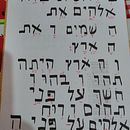 אלהים את
ה שמים ו את
ה ארץ
ו ה ארץ היתה
תהו ו בהו ו
חשך על פני
תהום ו רוח